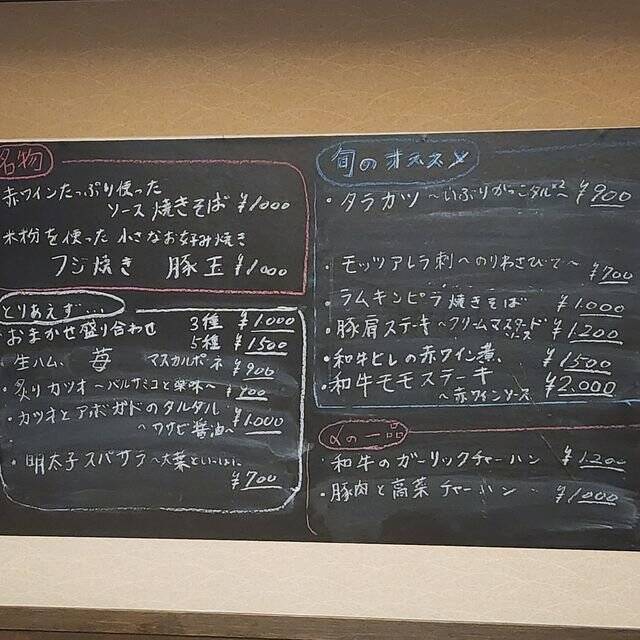 名物
赤ワインたっぷり使った
ソース焼きそば ¥1000
米粉を使った小さなお好み焼き
フジ焼き 豚玉 ¥1000
とりあえず…
おまかせ盛り合わせ 3種 ¥1000
5種 ¥1500
・生ハム、苺 マスカルポーネ ¥900
・炙りカツオ〜バルサミコと薬味〜 ¥900
・カツオとアボガドのタルタル
〜ワサビ醤油〜 ¥1,000
・明太子スパサラ〜大葉といっしょに
¥700
旬のオススメ
・タラカツ 〜いぶりがっこタル×2〜 ¥900
・モッツアレラ刺〜のりわさびで〜
¥700
・ラムキンピラ焼きそば ¥1000
・豚肩ステーキ〜クリームマスタード
ソース ¥1,200
・和牛ヒレの赤ワイン煮 ¥1500
・和牛モモステーキ
〜赤ワインソース ¥2,000
〆の一品
・和牛のガーリックチャーハン ¥1200
・豚肉と高菜チャーハン ¥1000